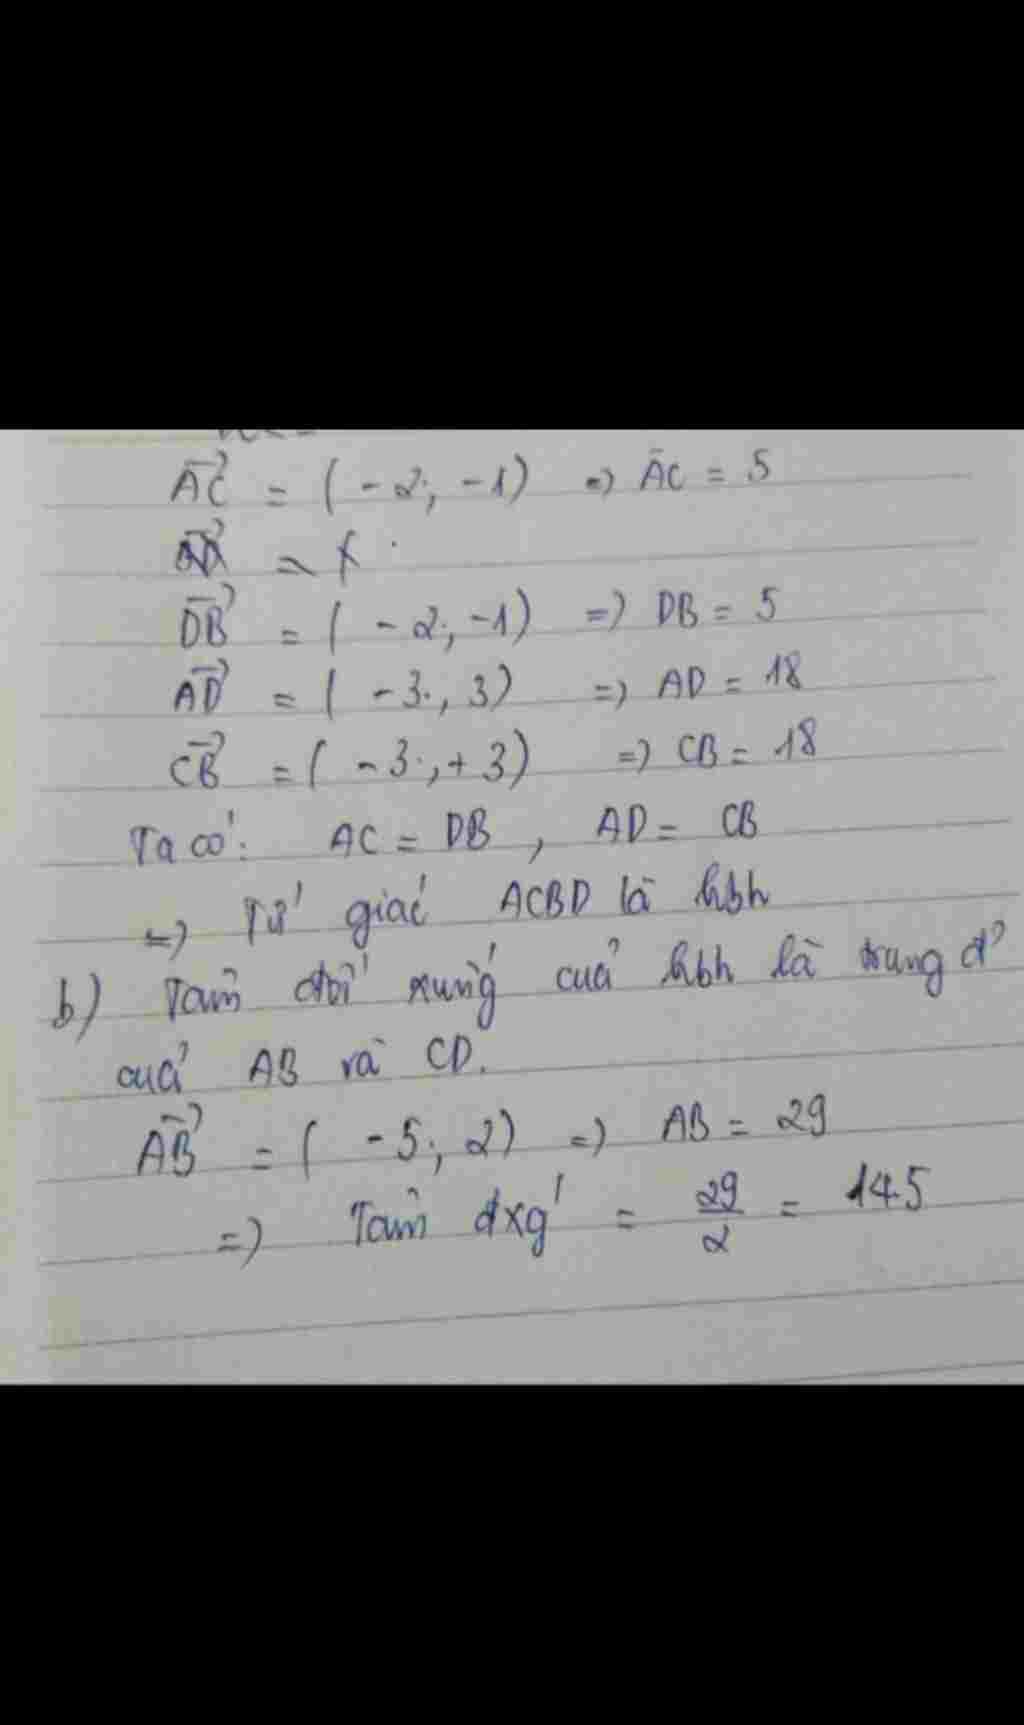 AC⃗ = (-2; -1) => AC = 5
DB⃗ = (-2; -1) => DB = 5
AD⃗ = (-3; 3) => AD = 18
CB⃗ = (-3; +3) => CB = 18
Ta có: AC = DB, AD = CB
=> Tứ giác ACBD là hbh
b) Tâm đối xứng của hbh là trung đ'
của AB và CD.
AB⃗ = (-5; 2) => AB = 29
=> Tâm đxg' = 29/2 = 14.5